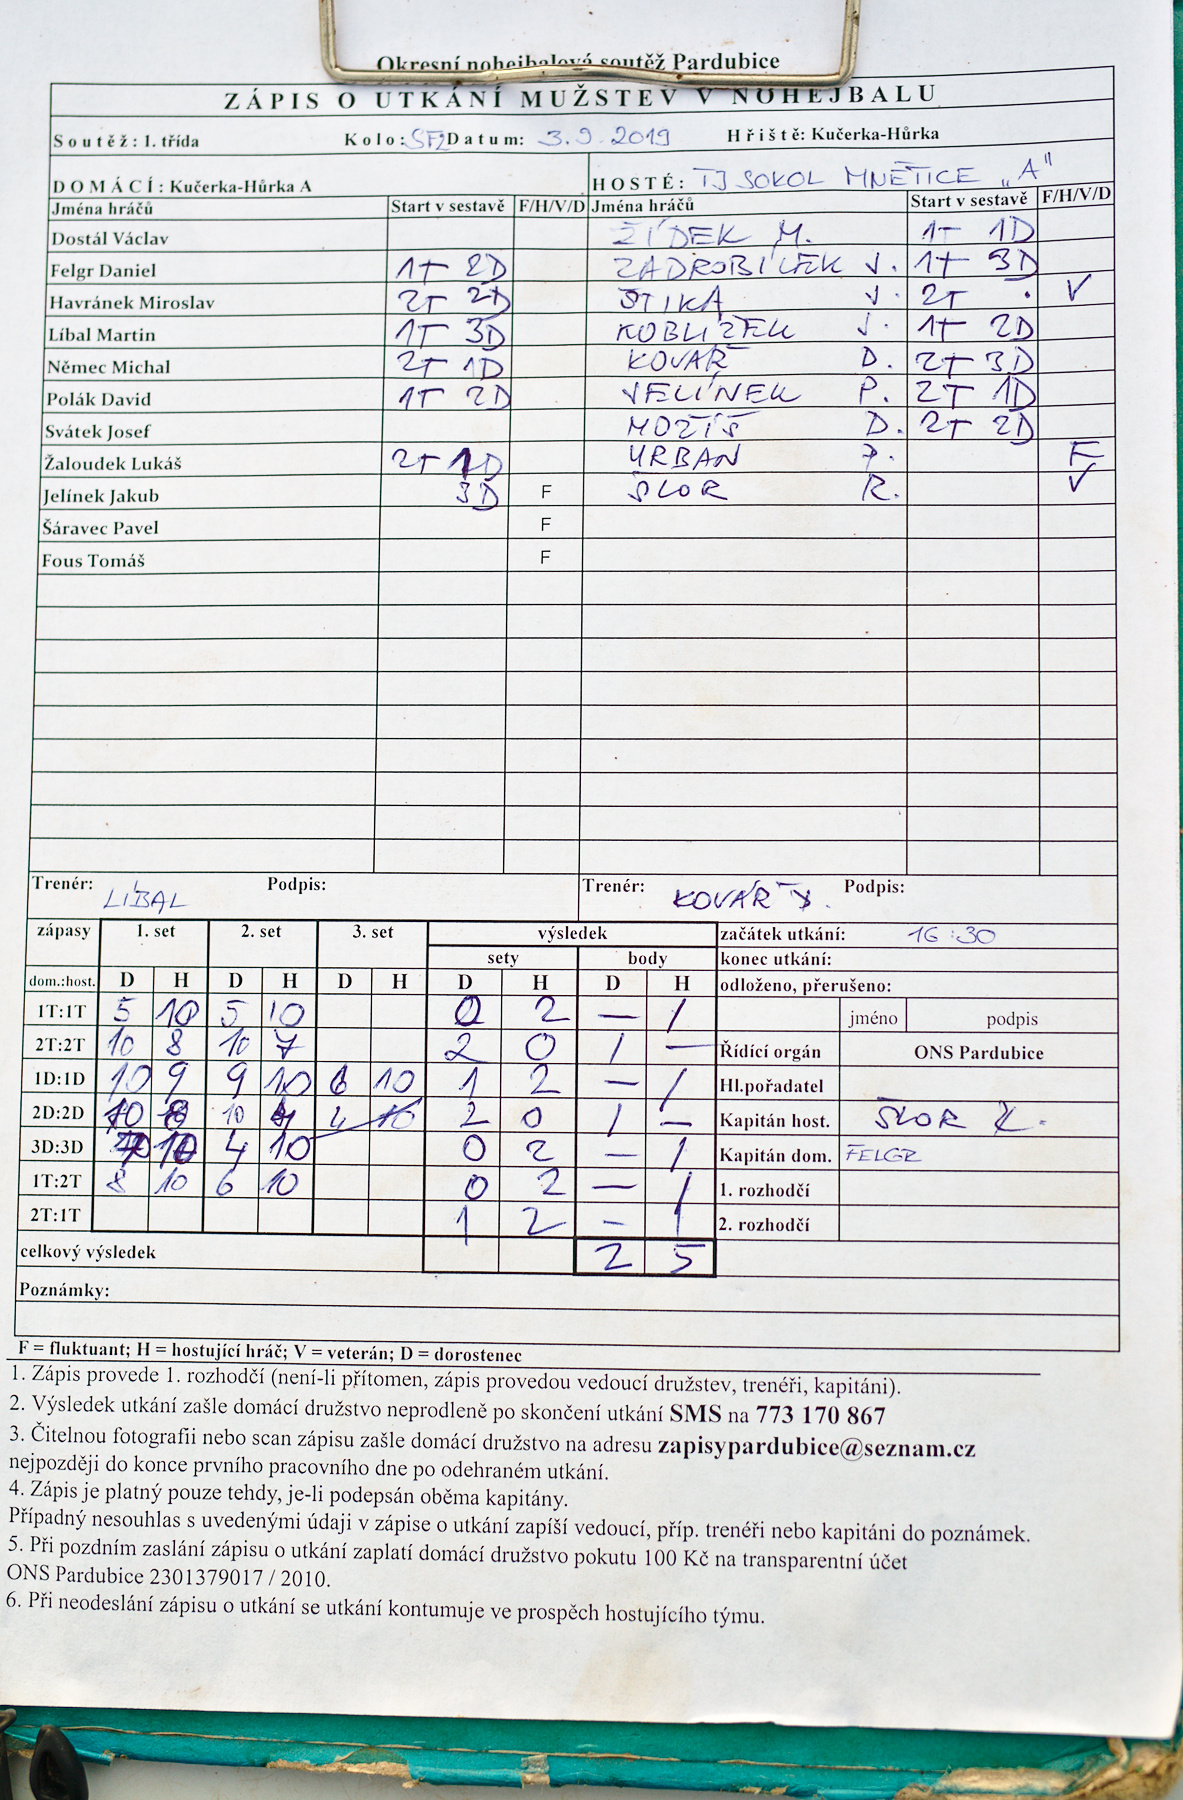 Okresní nohejbalová soutěž Pardubice
ZÁPIS O UTKÁNÍ MUŽSTEV V NOHEJBALU
Soutěž: 1. třída Kolo: SF2 Datum: 3.9.2019 Hřiště: Kučerka-Hůrka
DOMÁCÍ: Kučerka-Hůrka A HOSTÉ: TJ SOKOL MNĚTICE „A"
Jména hráčů Start v sestavě F/H/V/D Jména hráčů Start v sestavě F/H/V/D
Dostál Václav ŽÍDEK M. 1T 1D
Felgr Daniel 1T 2D ZADROBÍLEK J. 1T 3D
Havránek Miroslav 2T 2D ŠTIKA J. 2T . V
Líbal Martin 1T 3D KOBLÍŽEK J. 1T 2D
Němec Michal 2T 1D KOVÁŘ D. 2T 3D
Polák David 1T 2D JELÍNEK P. 2T 1D
Svátek Josef MOTIŠ D. 2T 2D
Žaloudek Lukáš 2T 1D URBAN P. F
Jelínek Jakub 3D F ŠLOR R. V
Šáravec Pavel F
Fous Tomáš F
Trenér: LÍBAL Podpis: Trenér: KOVÁŘ Podpis:
zápasy 1. set 2. set 3. set výsledek začátek utkání: 16:30
sety body konec utkání:
dom.:host. D H D H D H D H D H odloženo, přerušeno:
1T:1T 5 10 5 10 0 2 — 1 jméno podpis
2T:2T 10 8 10 7 2 0 1 — Řídící orgán ONS Pardubice
1D:1D 10 9 9 10 6 10 1 2 — 1 Hl.pořadatel
2D:2D 10 8 10 4 10 2 0 1 — Kapitán host. ŠLOR
3D:3D 10 4 10 0 2 — 1 Kapitán dom. FELGR
1T:2T 8 10 6 10 0 2 — 1 1. rozhodčí
2T:1T 1 2 – 1 2. rozhodčí
celkový výsledek 2 5
Poznámky:
F = fluktuant; H = hostující hráč; V = veterán; D = dorostenec
1. Zápis provede 1. rozhodčí (není-li přítomen, zápis provedou vedoucí družstev, trenéři, kapitáni).
2. Výsledek utkání zašle domácí družstvo neprodleně po skončení utkání SMS na 773 170 867
3. Čitelnou fotografii nebo scan zápisu zašle domácí družstvo na adresu zapisypardubice@seznam.cz
nejpozději do konce prvního pracovního dne po odehraném utkání.
4. Zápis je platný pouze tehdy, je-li podepsán oběma kapitány.
Případný nesouhlas s uvedenými údaji v zápise o utkání zapíší vedoucí, příp. trenéři nebo kapitáni do poznámek.
5. Při pozdním zaslání zápisu o utkání zaplatí domácí družstvo pokutu 100 Kč na transparentní účet
ONS Pardubice 2301379017 / 2010.
6. Při neodeslání zápisu o utkání se utkání kontumuje ve prospěch hostujícího týmu.